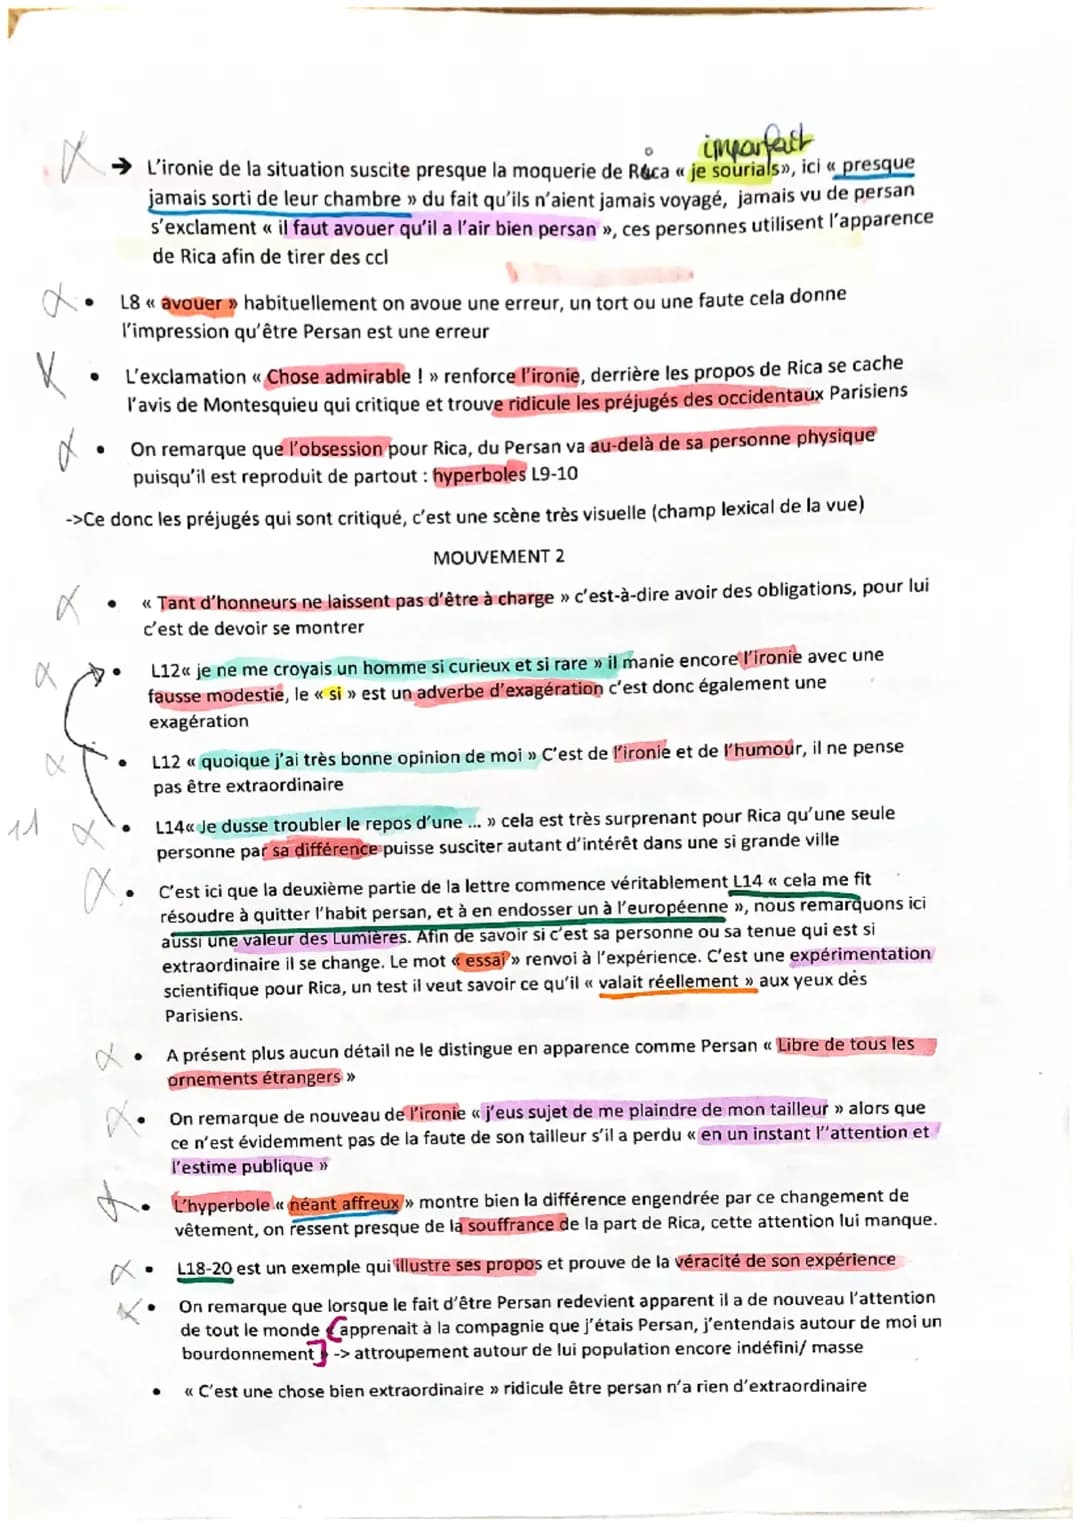 imparfait
→ L'ironie de la situation suscite presque la moquerie de Rica « je souriais», ici « presque
jamais sorti de leur chambre » du fait qu'ils n'aient jamais voyagé, jamais vu de persan
s'exclament « il faut avouer qu'il a l'air bien persan », ces personnes utilisent l'apparence
de Rica afin de tirer des ccl
• L8 « avouer » habituellement on avoue une erreur, un tort ou une faute cela donne
l'impression qu'être Persan est une erreur
• L'exclamation « Chose admirable ! » renforce l'ironie, derrière les propos de Rica se cache
l'avis de Montesquieu qui critique et trouve ridicule les préjugés des occidentaux Parisiens
• On remarque que l'obsession pour Rica, du Persan va au-delà de sa personne physique
puisqu'il est reproduit de partout : hyperboles L9-10
->Ce donc les préjugés qui sont critiqué, c'est une scène très visuelle (champ lexical de la vue)
MOUVEMENT 2
• « Tant d'honneurs ne laissent pas d'être à charge » c'est-à-dire avoir des obligations, pour lui
c'est de devoir se montrer
• L12« je ne me croyais un homme si curieux et si rare » il manie encore l'ironie avec une
fausse modestie, le « si » est un adverbe d'exagération c'est donc également une
exagération
• L12 « quoique j'ai très bonne opinion de moi » C'est de l'ironie et de l'humour, il ne pense
pas être extraordinaire
• L14« Je dusse troubler le repos d'une ... » cela est très surprenant pour Rica qu'une seule
personne par sa différence puisse susciter autant d'intérêt dans une si grande ville
• C'est ici que la deuxième partie de la lettre commence véritablement L14 « cela me fit
résoudre à quitter l'habit persan, et à en endosser un à l'européenne », nous remarquons ici
aussi une valeur des Lumières. Afin de savoir si c'est sa personne ou sa tenue qui est si
extraordinaire il se change. Le mot « essai » renvoi à l'expérience. C'est une expérimentation
scientifique pour Rica, un test il veut savoir ce qu'il « valait réellement » aux yeux des
Parisiens.
• A présent plus aucun détail ne le distingue en apparence comme Persan « Libre de tous les
ornements étrangers »
• On remarque de nouveau de l'ironie « j'eus sujet de me plaindre de mon tailleur » alors que
ce n'est évidemment pas de la faute de son tailleur s'il a perdu « en un instant l''attention et
l'estime publique »
• L'hyperbole « néant affreux » montre bien la différence engendrée par ce changement de
vêtement, on ressent presque de la souffrance de la part de Rica, cette attention lui manque.
• L18-20 est un exemple qui illustre ses propos et prouve de la véracité de son expérience
• On remarque que lorsque le fait d'être Persan redevient apparent il a de nouveau l'attention
de tout le monde « apprenait à la compagnie que j'étais Persan, j'entendais autour de moi un
bourdonnement » -> attroupement autour de lui population encore indéfini/ masse
• « C'est une chose bien extraordinaire » ridicule être persan n'a rien d'extraordinaire